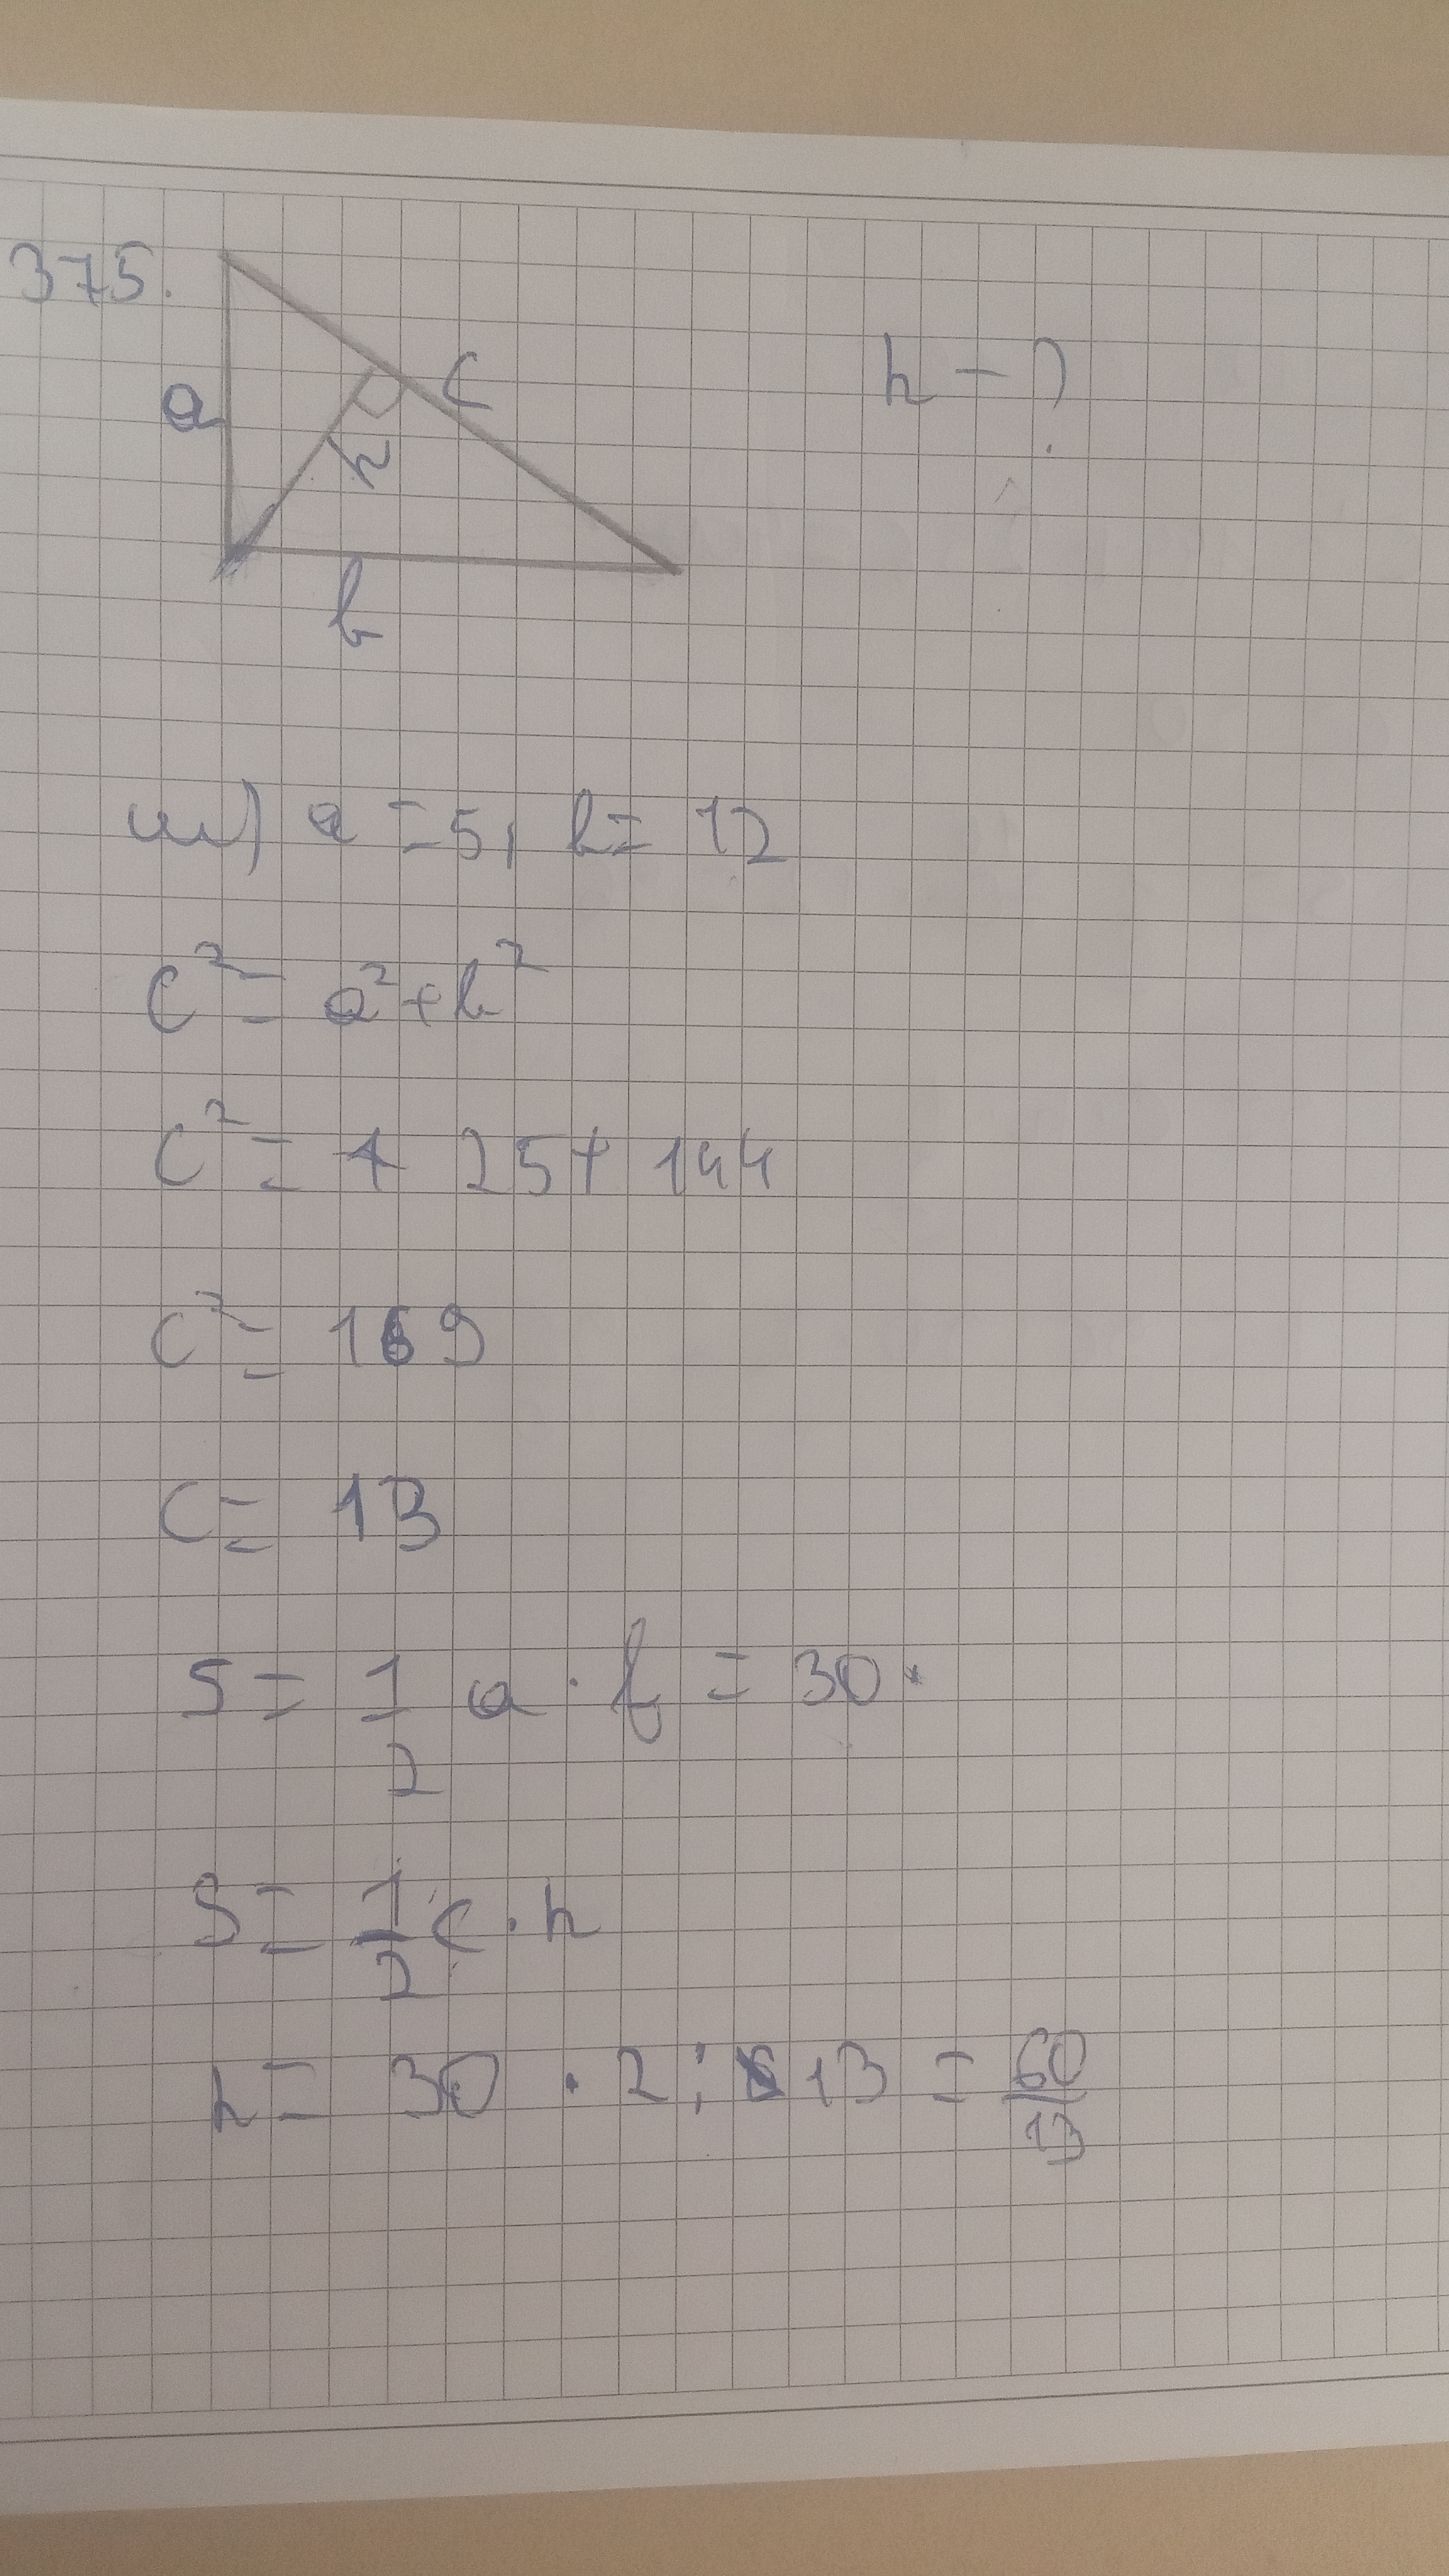 375.
a
c
h - ?
h
b
ш) a = 5, b = 12
c² = a² + b²
c² = 25 + 144
c² = 169
c = 13
S = 1/2 a · b = 30.
S = 1/2 c · h
h = 30 · 2 : 13 = 60/13